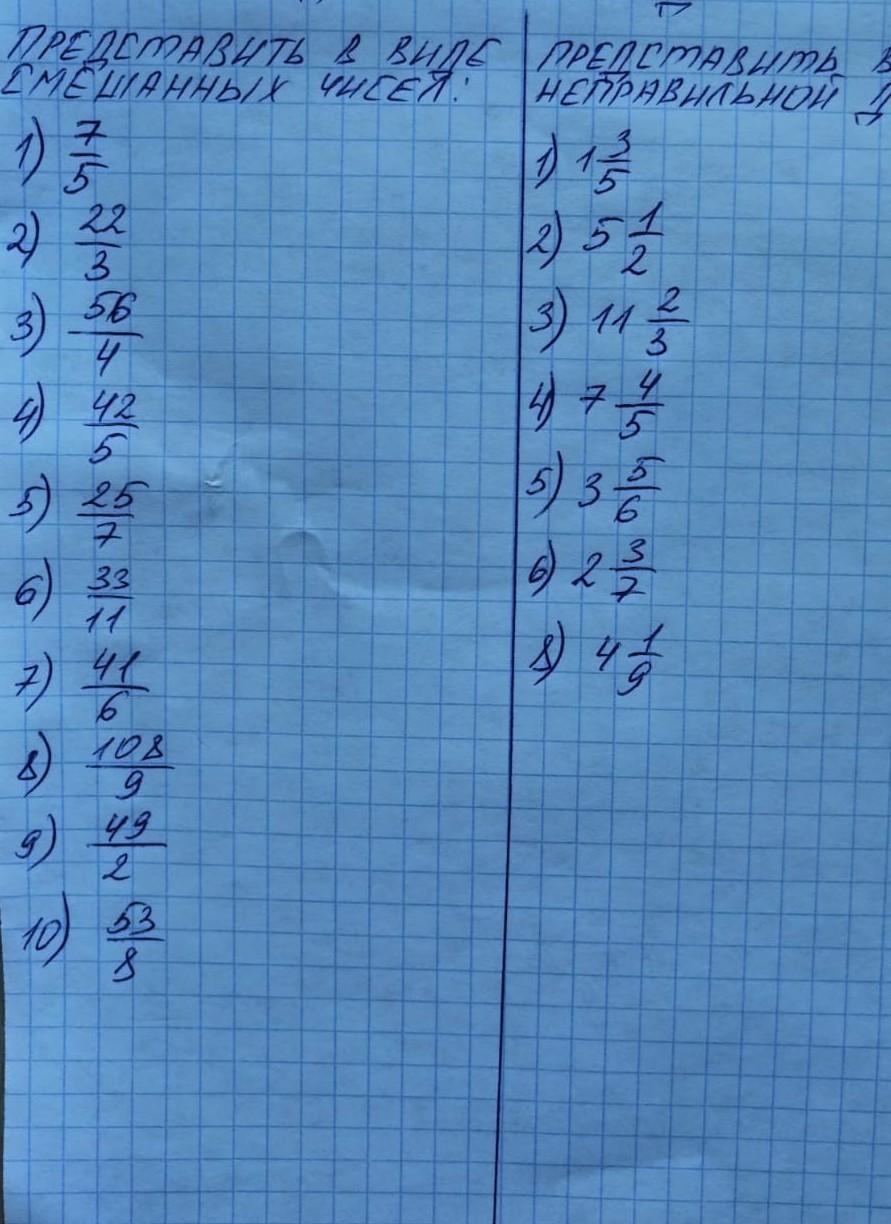 ПРЕДСТАВИТЬ В ВИДЕ
СМЕШАННЫХ ЧИСЕЛ:
1) 7/5
2) 22/3
3) 56/4
4) 42/5
5) 25/7
6) 33/11
7) 41/6
8) 108/9
9) 49/2
10) 53/8
ПРЕДСТАВИТЬ В
НЕПРАВИЛЬНОЙ Д
1) 1 3/5
2) 5 1/2
3) 11 2/3
4) 7 4/5
5) 3 5/6
6) 2 3/7
8) 4 1/9